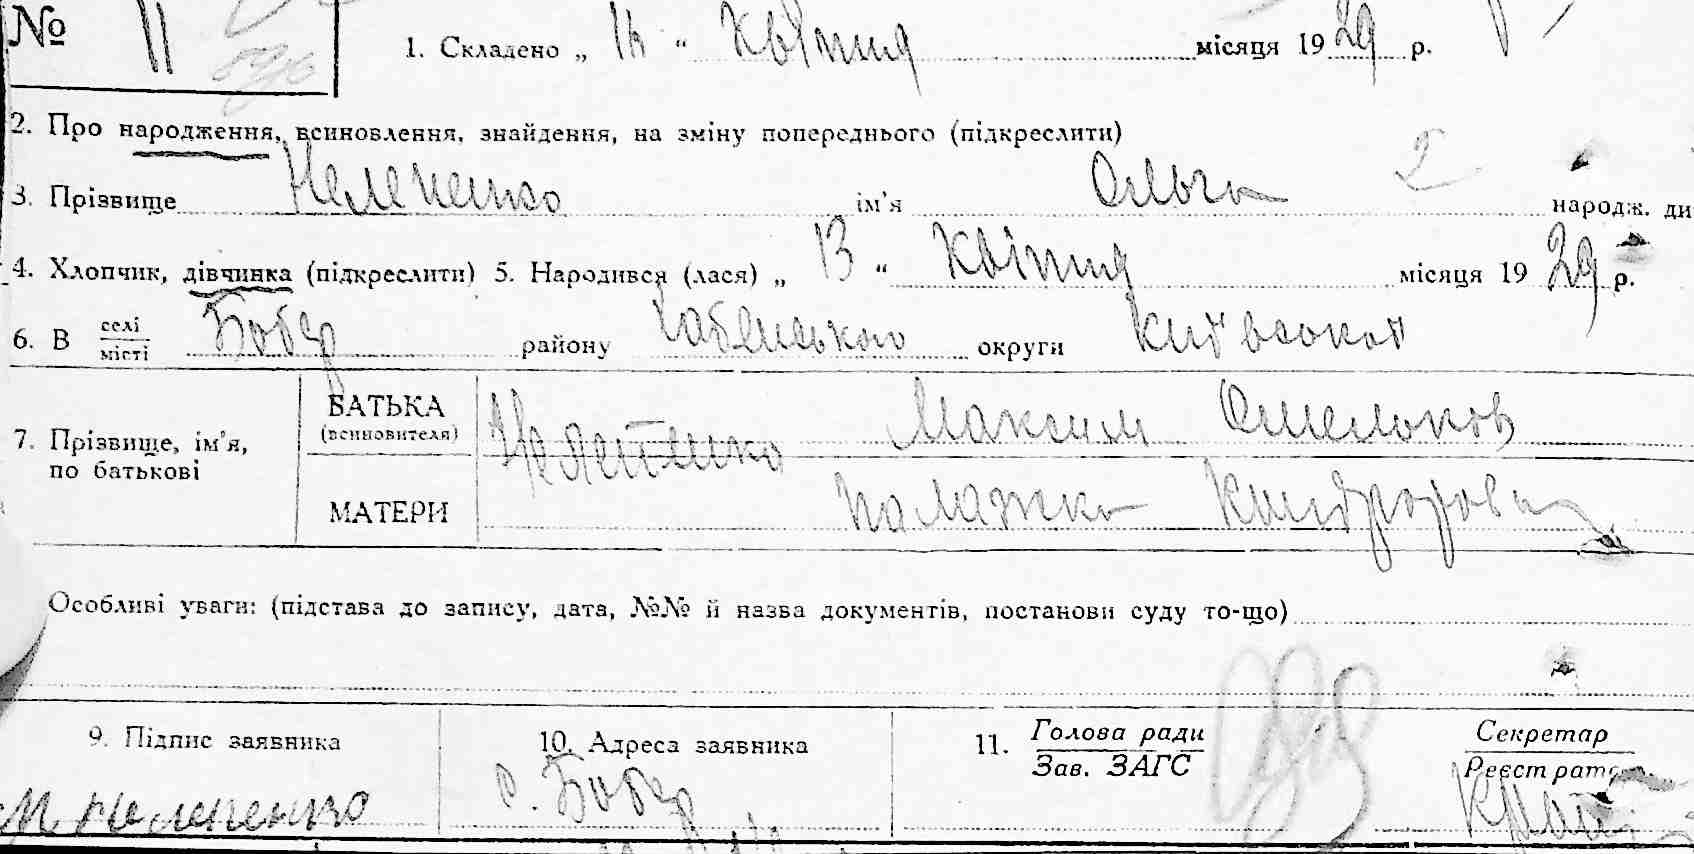 № 11
1. Складено „ 16 “ Квітня місяця 1929 р.
2. Про народження, всиновлення, знайдення, на зміну попереднього (підкреслити)
3. Прізвище Нелепенко ім’я Ольга 2 народж. ди
4. Хлопчик, дівчинка (підкреслити) 5. Народився (лася) „ 13 “ Квітня місяця 1929 р.
6. В селі/місті Бобер району Хабенського округи Київської
7. Прізвище, ім’я, по батькові
БАТЬКА (всиновителя) Нелепенко Максим Омельков
МАТЕРИ Палажка Кындратова
Особливі уваги: (підстава до запису, дата, №№ й назва документів, постанови суду то-що)
9. Підпис заявника 10. Адреса заявника 11. Голова ради Секретар
Зав. ЗАГС Реєстрат
М. Нелепенко с. Бобер